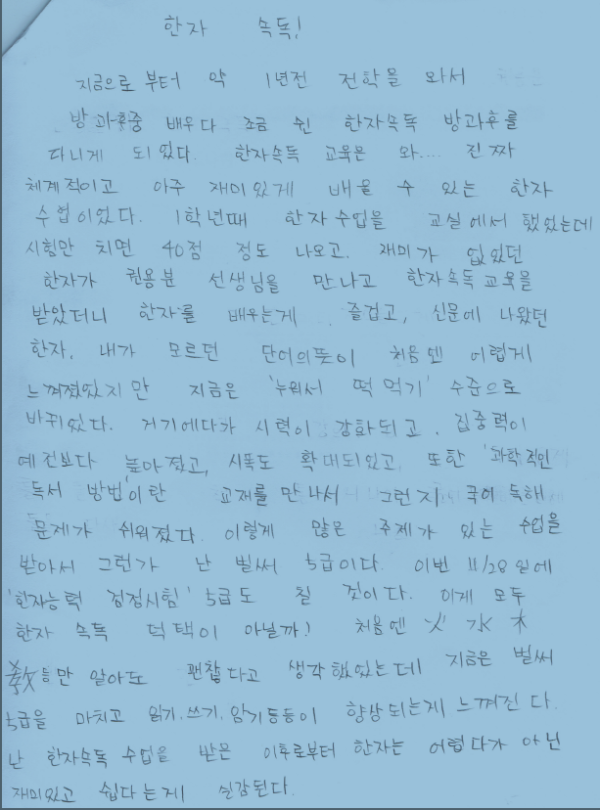 한자 속독!
지금으로부터 약 1년전 전학을 와서
방과후중 배우다 조금 쉰 한자속독 방과후를
다니게 되있다. 한자속독 교육은 와.... 진짜
체계적이고 아주 재미있게 배울 수 있는 한자
수업이었다. 1학년때 한자수업을 교실에서 했었는데
시험만 치면 40점 정도 나오고. 재미가 없있던
한자가 권용분 선생님을 만나고 한자속독교육을
받았더니 한자를 배우는게 즐겁고, 신문에 나왔던
한자, 내가 모르던 단어의뜻이 처음엔 어렵게
느껴졌있지만 지금은 '누워서 떡 먹기' 수준으로
바뀌있다. 거기에다가 시력이 강화되고. 집중력이
예전보다 높아졌고, 시폭도 확대되있고. 또한 '과학적인
독서 방법'이란 교재를 만나서 그런지 국어 독해
문제가 쉬워졌다. 이렇게 많은 주제가 있는 수업을
받아서 그런가 난 벌써 5급이다. 이번 11/28일에
'한자능력 검정시험' 5급도 칠 것이다. 이게 모두
한자 속독 덕택이 아닐까! 처음엔 火 水 木
敎등만 알아도 괜찮다고 생각했있는데 지금은 벌써
5급을 마치고 읽기.쓰기.암기등등이 향상되는게 느껴진다.
난 한자속독 수업을 받은 이후로부터 한자는 어렵다가 아닌
재미있고 쉽다는게 실감된다.